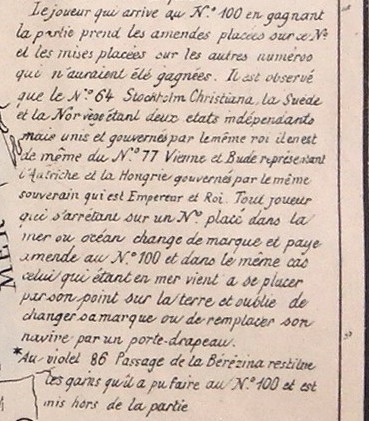 Le joueur qui arrive au N.º 100 en gagnant
la partie prend les amendes placées sur ce Nº
et les mises placées sur les autres numéros
qui n'auraient été gagnées. Il est observé
que le N.º 64 Stockholm Christiana, la Suéde
et la Norvège étant deux etats indépendants
mais unis et gouvernés par le même roi il en est
de même du N.º 77 Vienne et Bude représentant
l'Autriche et la Hongrie gouvernés par le même
souverain qui est Empereur et Roi. Tout joueur
qui s'arrêtant sur un Nº placé dans la
mer ou océan change de marque et paye
amende au N.º 100 et dans le même cas
celui qui étant en mer vient a se placer
par son point sur la terre et oublie de
changer sa marque ou de remplacer son
navire par un porte-drapeau.
*Au violet 86 Passage de la Bérézina restitue
les gains qu'il a pu faire au N.º 100 et est
mis hors de la partie
MER